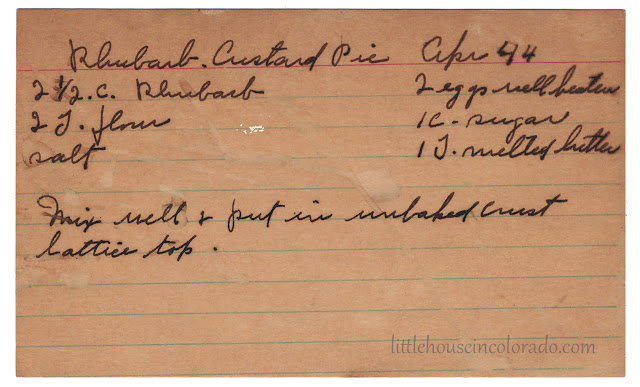 Rhubarb Custard Pie Apr 44
2 1/2 c. Rhubarb 2 eggs well beaten
2 T. flour 1 c. sugar
salt 1 T. melted butter
Mix well & put in unbaked crust
lattice top.
littlehouseincolorado.com